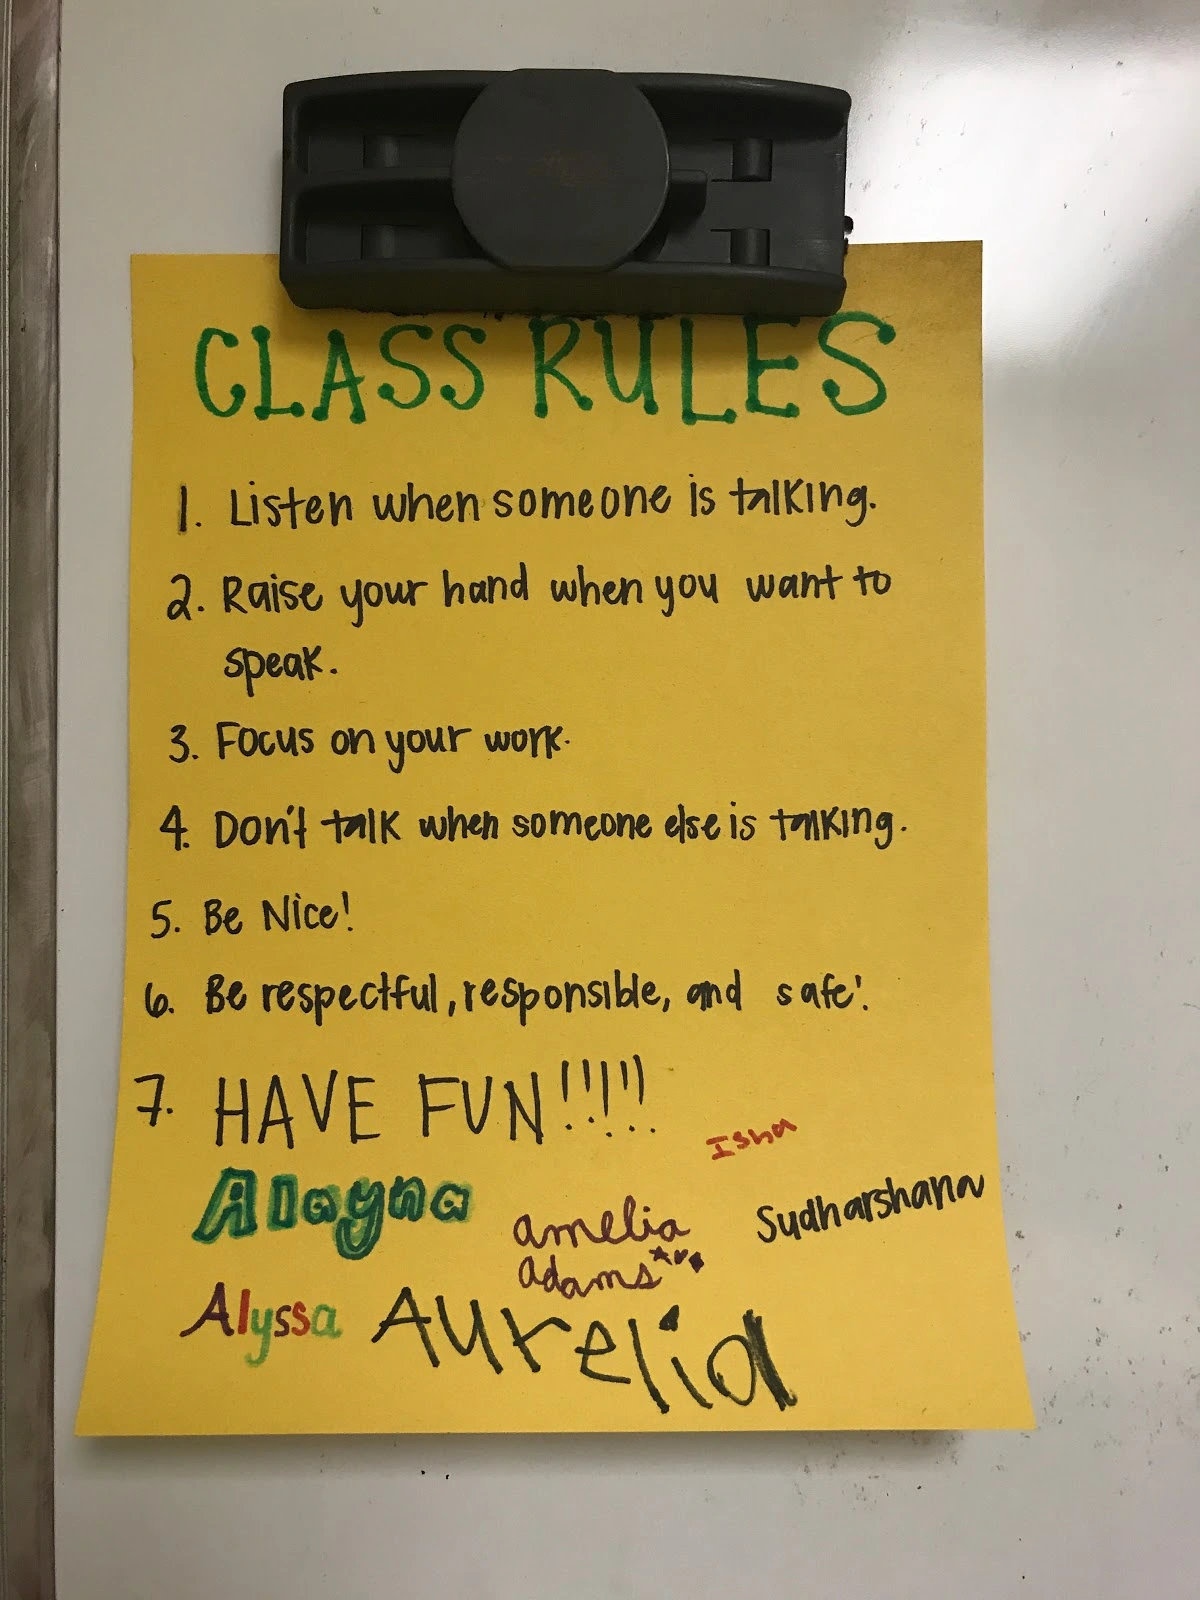 CLASS RULES
1. Listen when someone is talking.
2. Raise your hand when you want to
speak.
3. Focus on your work.
4. Don't talk when someone else is talking.
5. Be Nice!
6. Be respectful, responsible, and safe!
7. HAVE FUN!!!!!
Isha
Alayna
amelia
adams
Sudharshana
Alyssa
Aurelia